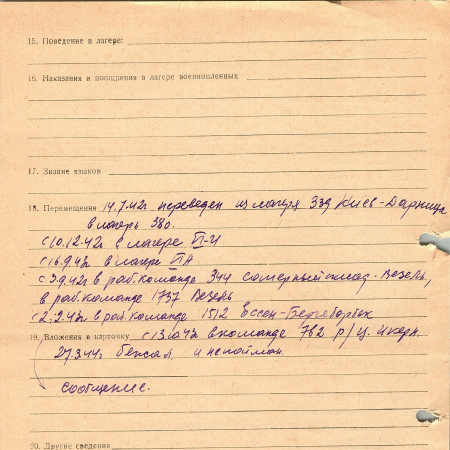 15. Поведение в лагере:
16. Наказания и поощрения в лагере военнопленных
17. Знание языков
18. Перемещения 14.7.42г переведен из лагеря 339 Киев-Дарница
в лагерь 380.
с 10.12.42г в лагере П-И
с 16.9.42г в лагере ПА
с 3.9.42г в раб.команде 344 саперный склад-Везель,
в раб.команде 1737 Везель
с 2.2.43г в раб.команде 1512 Ессен-Бергеборбек
19. Вложения в карточку с 13.10.43г в команде 762 р/ц.
27.3.44г бежал и не пойман.
Сообщение.
20. Другие сведения